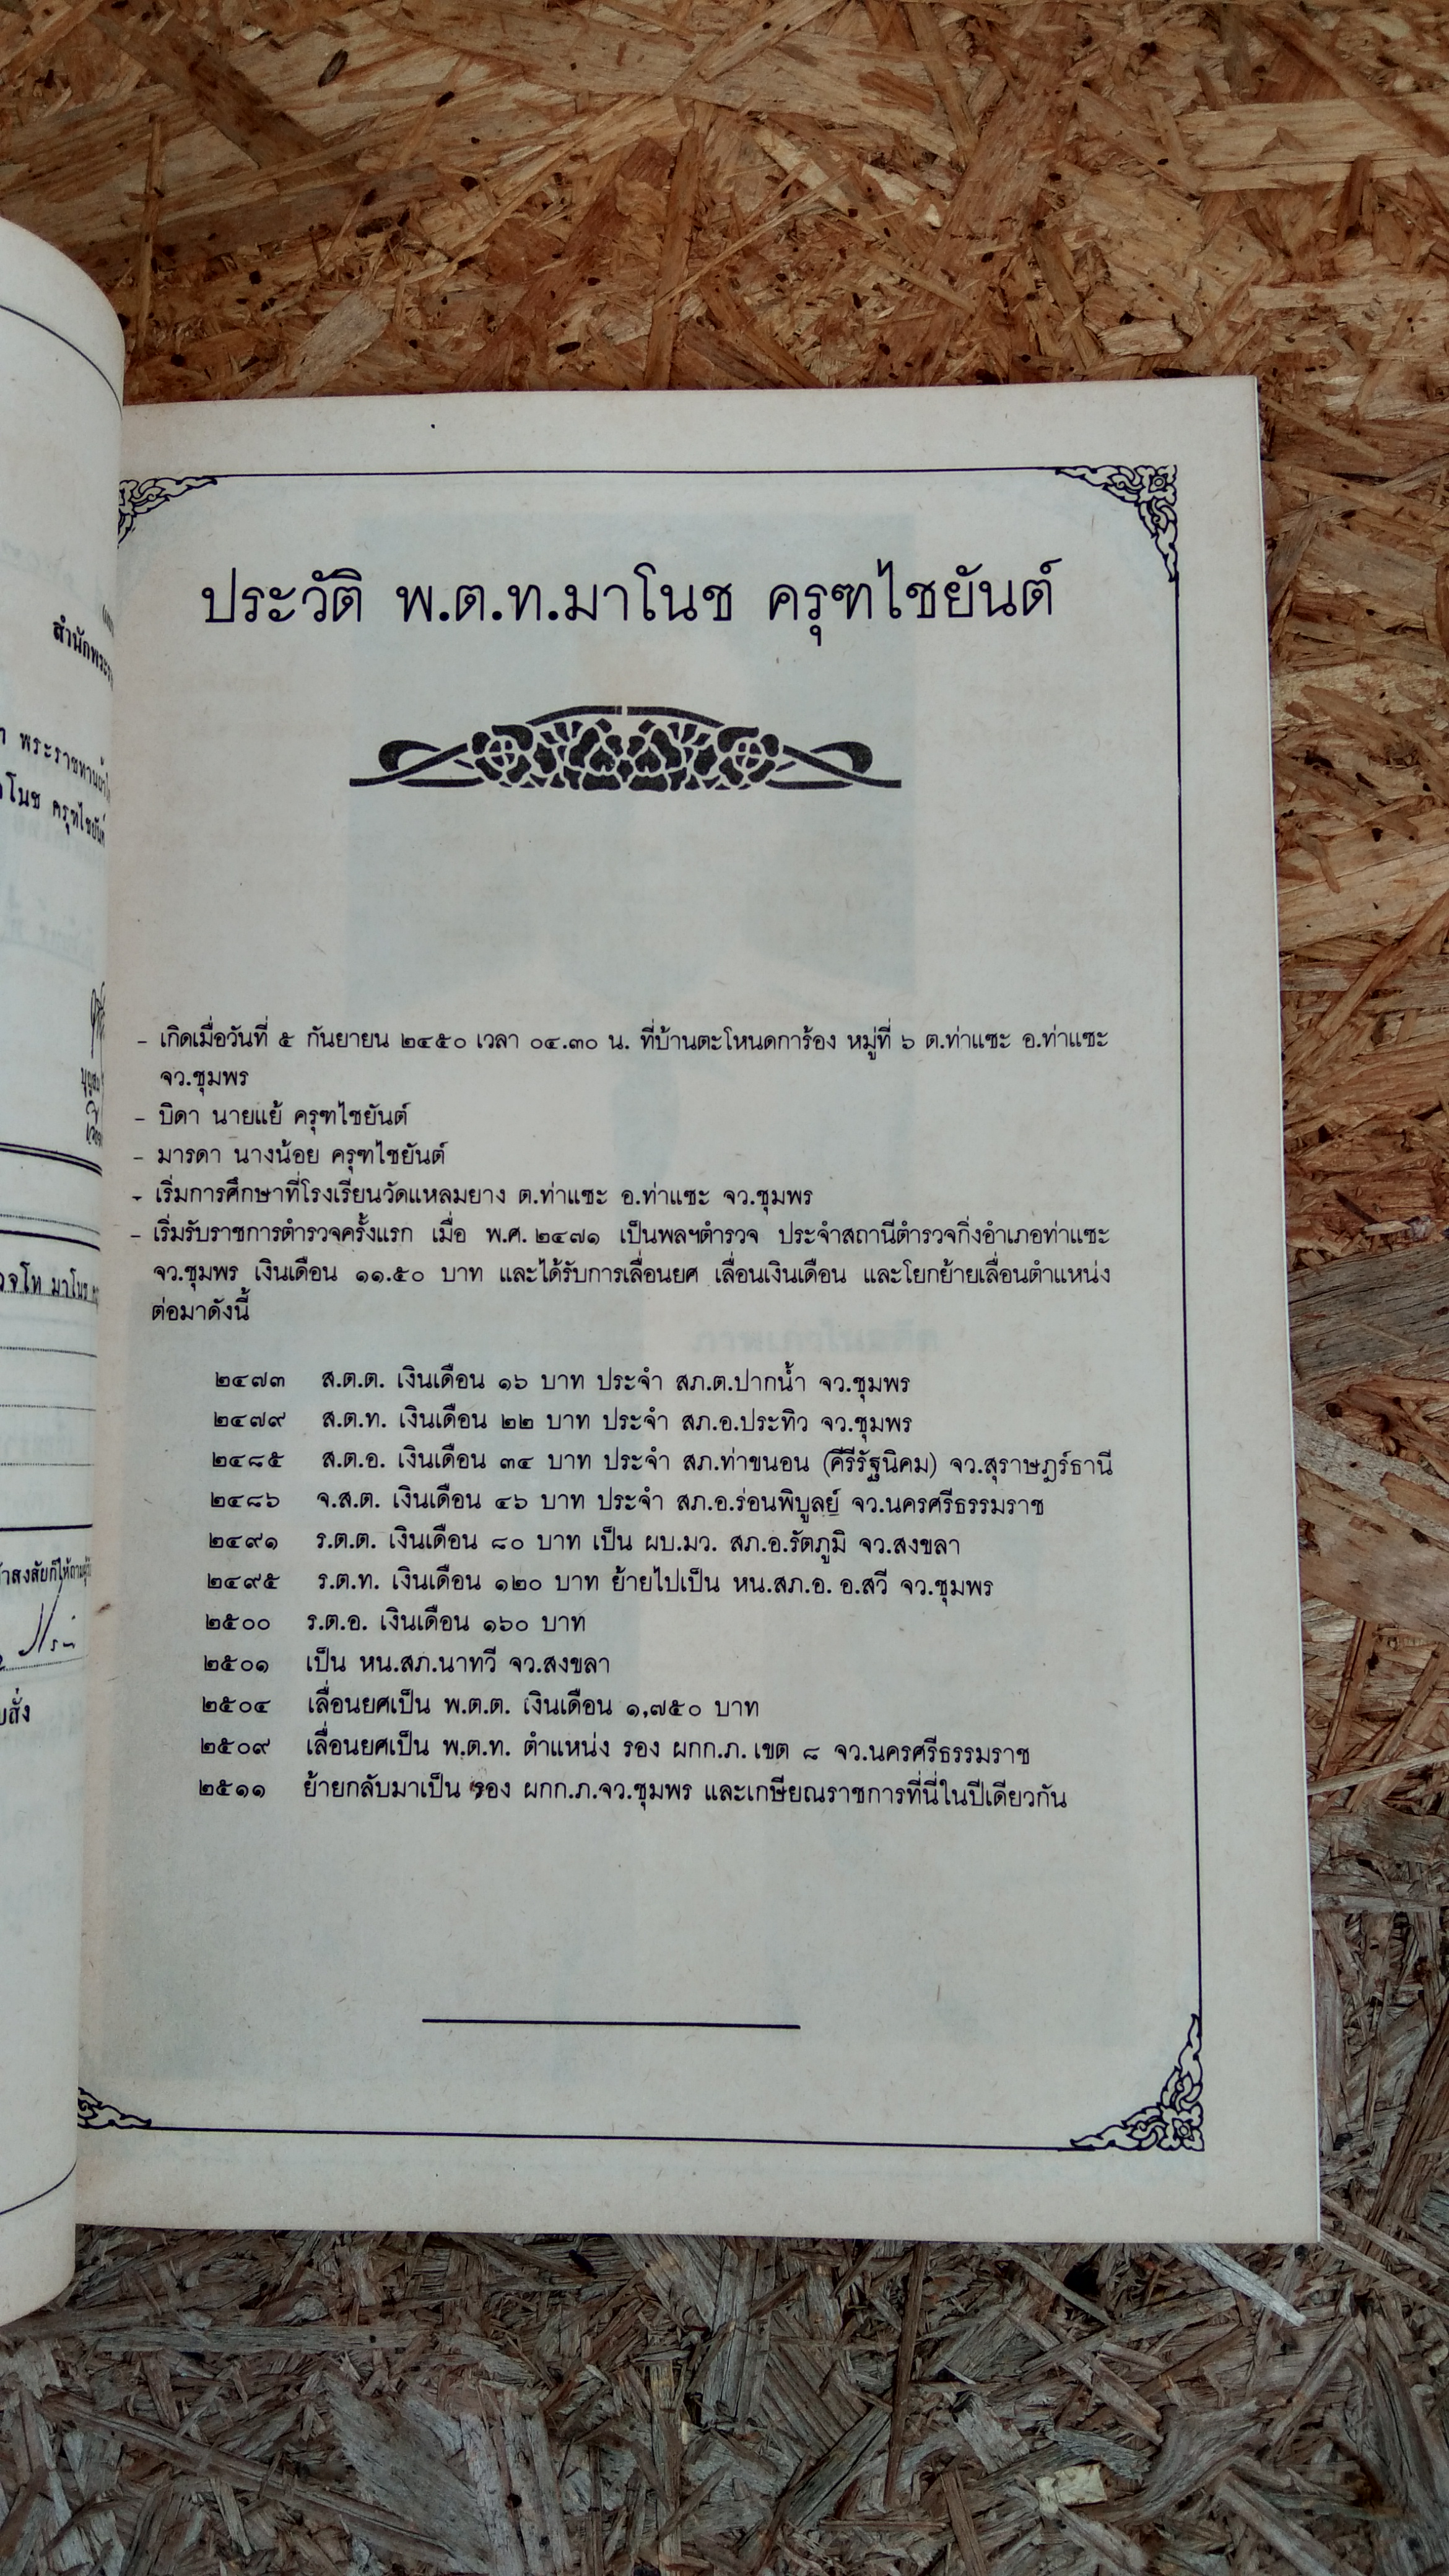 สำนักพระ
พระราชทาน
โนช ครุฑไชยันต์
โท มาโนช
สงสัยก็ให้ถาม
สั่ง
ประวัติ พ.ต.ท.มาโนช ครุฑไชยันต์
- เกิดเมื่อวันที่ ๕ กันยายน ๒๔๕๐ เวลา ๐๔.๓๐ น. ที่บ้านตะโหนดการ้อง หมู่ที่ ๖ ต.ท่าแซะ อ.ท่าแซะ
จว.ชุมพร
- บิดา นายแย้ ครุฑไชยันต์
- มารดา นางน้อย ครุฑไชยันต์
- เริ่มการศึกษาที่โรงเรียนวัดแหลมยาง ต.ท่าแซะ อ.ท่าแซะ จว.ชุมพร
- เริ่มรับราชการตำรวจครั้งแรก เมื่อ พ.ศ. ๒๔๗๑ เป็นพลฯตำรวจ ประจำสถานีตำรวจกิ่งอำเภอท่าแซะ
จว.ชุมพร เงินเดือน ๑๑.๕๐ บาท และได้รับการเลื่อนยศ เลื่อนเงินเดือน และโยกย้ายเลื่อนตำแหน่ง
ต่อมาดังนี้
๒๔๗๓ ส.ต.ต. เงินเดือน ๑๖ บาท ประจำ สภ.ต.ปากน้ำ จว.ชุมพร
๒๔๗๙ ส.ต.ท. เงินเดือน ๒๒ บาท ประจำ สภ.อ.ประทิว จว.ชุมพร
๒๔๘๕ ส.ต.อ. เงินเดือน ๓๔ บาท ประจำ สภ.ท่าขนอน (คีรีรัฐนิคม) จว.สุราษฎร์ธานี
๒๔๘๖ จ.ส.ต. เงินเดือน ๔๖ บาท ประจำ สภ.อ.ร่อนพิบูลย์ จว.นครศรีธรรมราช
๒๔๙๑ ร.ต.ต. เงินเดือน ๘๐ บาท เป็น ผบ.มว. สภ.อ.รัตภูมิ จว.สงขลา
๒๔๙๕ ร.ต.ท. เงินเดือน ๑๒๐ บาท ย้ายไปเป็น หน.สภ.อ. อ.สวี จว.ชุมพร
๒๕๐๐ ร.ต.อ. เงินเดือน ๑๖๐ บาท
๒๕๐๑ เป็น หน.สภ.นาทวี จว.สงขลา
๒๕๐๔ เลื่อนยศเป็น พ.ต.ต. เงินเดือน ๑,๗๕๐ บาท
๒๕๐๙ เลื่อนยศเป็น พ.ต.ท. ตำแหน่ง รอง ผกก.ภ. เขต ๘ จว.นครศรีธรรมราช
๒๕๑๑ ย้ายกลับมาเป็น รอง ผกก.ภ.จว.ชุมพร และเกษียณราชการที่นี่ในปีเดียวกัน